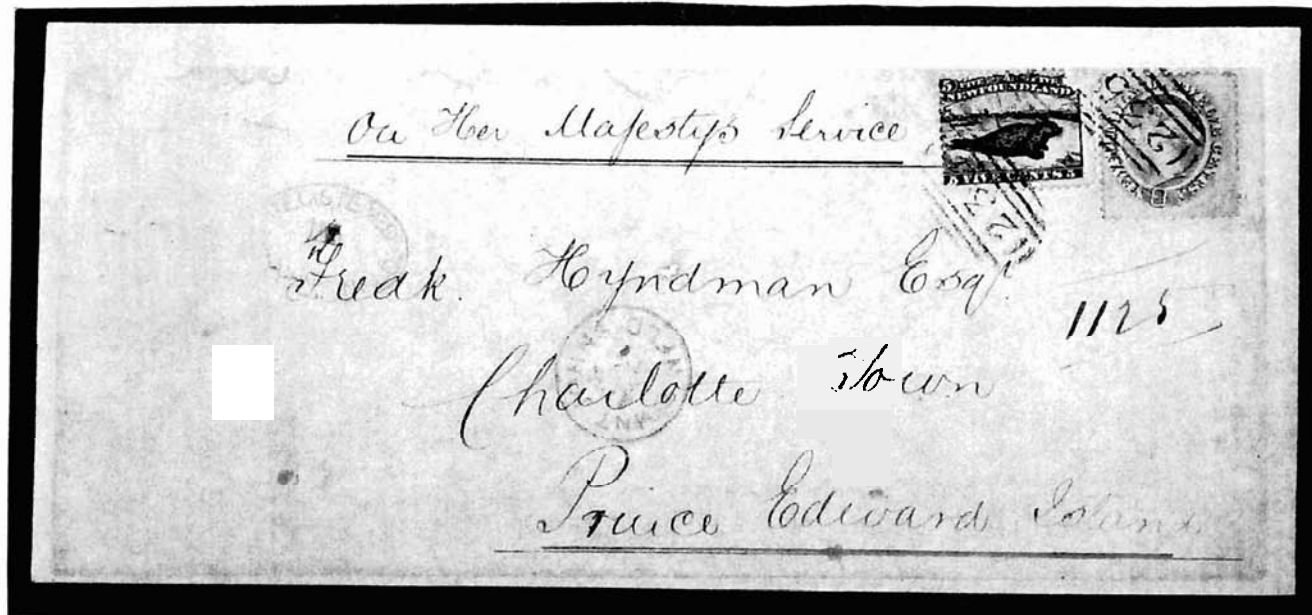 On Her Majesty's Service,
NEWFOUNDLAND
FIVE CENTS
REGISTERED
Fredk. Hyndman Esqr.
1125
Charlotte Town
Prince Edward Island